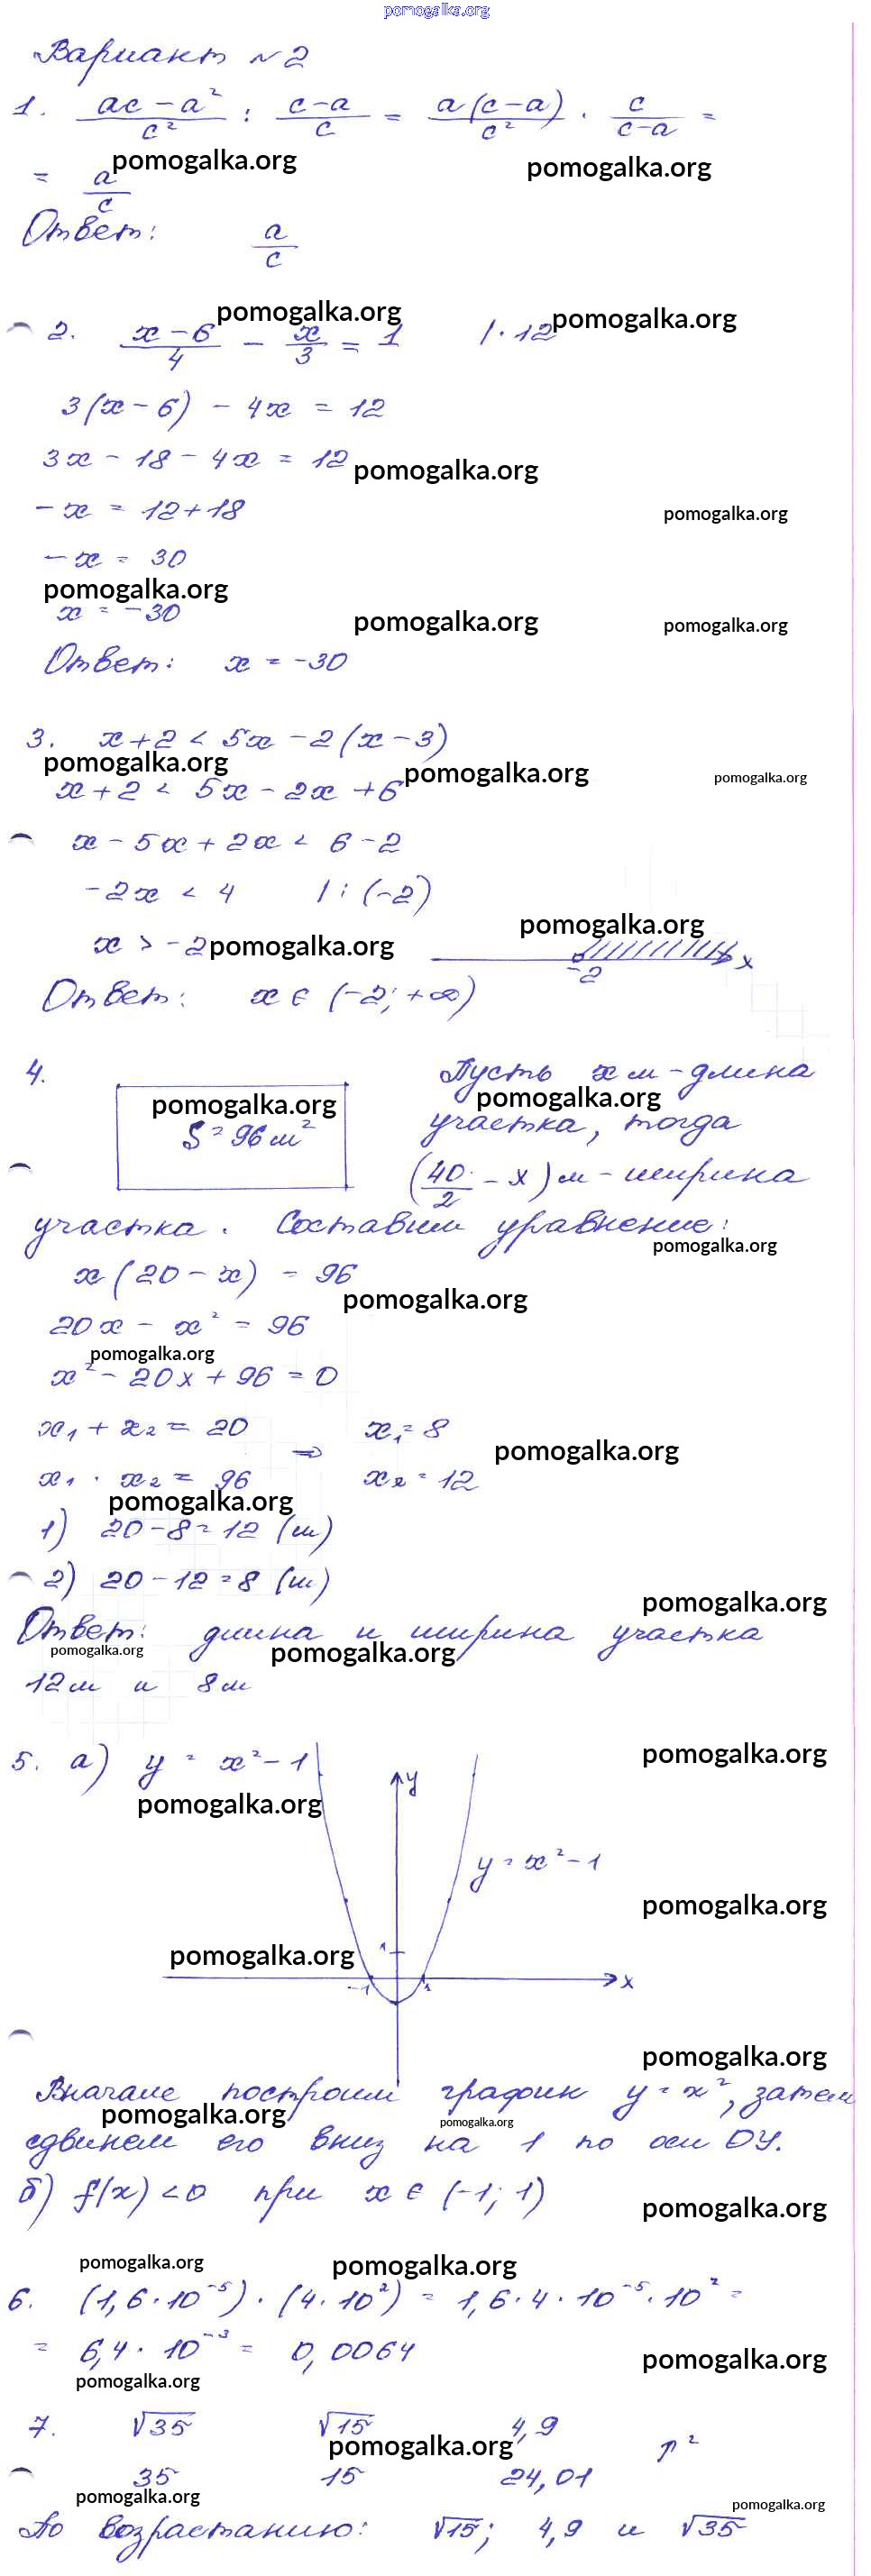 pomogalka.org
Вариант №2
1. (ac − a²)/c² : (c−a)/c = a(c−a)/c² · c/(c−a) =
pomogalka.org pomogalka.org
= a/c
Ответ: a/c
pomogalka.org pomogalka.org
2. (x−6)/4 − x/3 = 1 | · 12
3(x−6) − 4x = 12
3x − 18 − 4x = 12 pomogalka.org
−x = 12+18 pomogalka.org
−x = 30
pomogalka.org
x = −30 pomogalka.org pomogalka.org
Ответ: x = −30
3. x+2 < 5x − 2(x−3)
pomogalka.org pomogalka.org pomogalka.org
x+2 < 5x − 2x + 6
x − 5x + 2x < 6 − 2
−2x < 4 | : (−2)
pomogalka.org
x > −2 pomogalka.org −2 x
Ответ: x ∈ (−2; +∞)
4. Пусть x м – длина
pomogalka.org pomogalka.org
S = 96 м² участка, тогда
(40/2 − x) м – ширина
участка. Составим уравнение:
pomogalka.org
x(20 − x) = 96
pomogalka.org
20x − x² = 96
pomogalka.org
x² − 20x + 96 = 0
x₁ + x₂ = 20 ⇒ x₁ = 8
pomogalka.org
x₁ · x₂ = 96 x₂ = 12
pomogalka.org
1) 20 − 8 = 12 (м)
2) 20 − 12 = 8 (м)
pomogalka.org
Ответ: длина и ширина участка
pomogalka.org pomogalka.org
12 м и 8 м
5. а) y = x² − 1 pomogalka.org
y
pomogalka.org
y = x² − 1
pomogalka.org
pomogalka.org 1
−1 1 x
pomogalka.org
Вначале построим график y = x², затем
pomogalka.org pomogalka.org
сдвинем его вниз на 1 по оси OY.
б) f(x) < 0 при x ∈ (−1; 1)
pomogalka.org
pomogalka.org pomogalka.org
6. (1,6 · 10⁻⁵) · (4 · 10²) = 1,6 · 4 · 10⁻⁵ · 10² =
= 6,4 · 10⁻³ = 0,0064
pomogalka.org
pomogalka.org
7. √35 √15 4,9
pomogalka.org ↑²
35 15 24,01
pomogalka.org pomogalka.org
По возрастанию: √15; 4,9 и √35